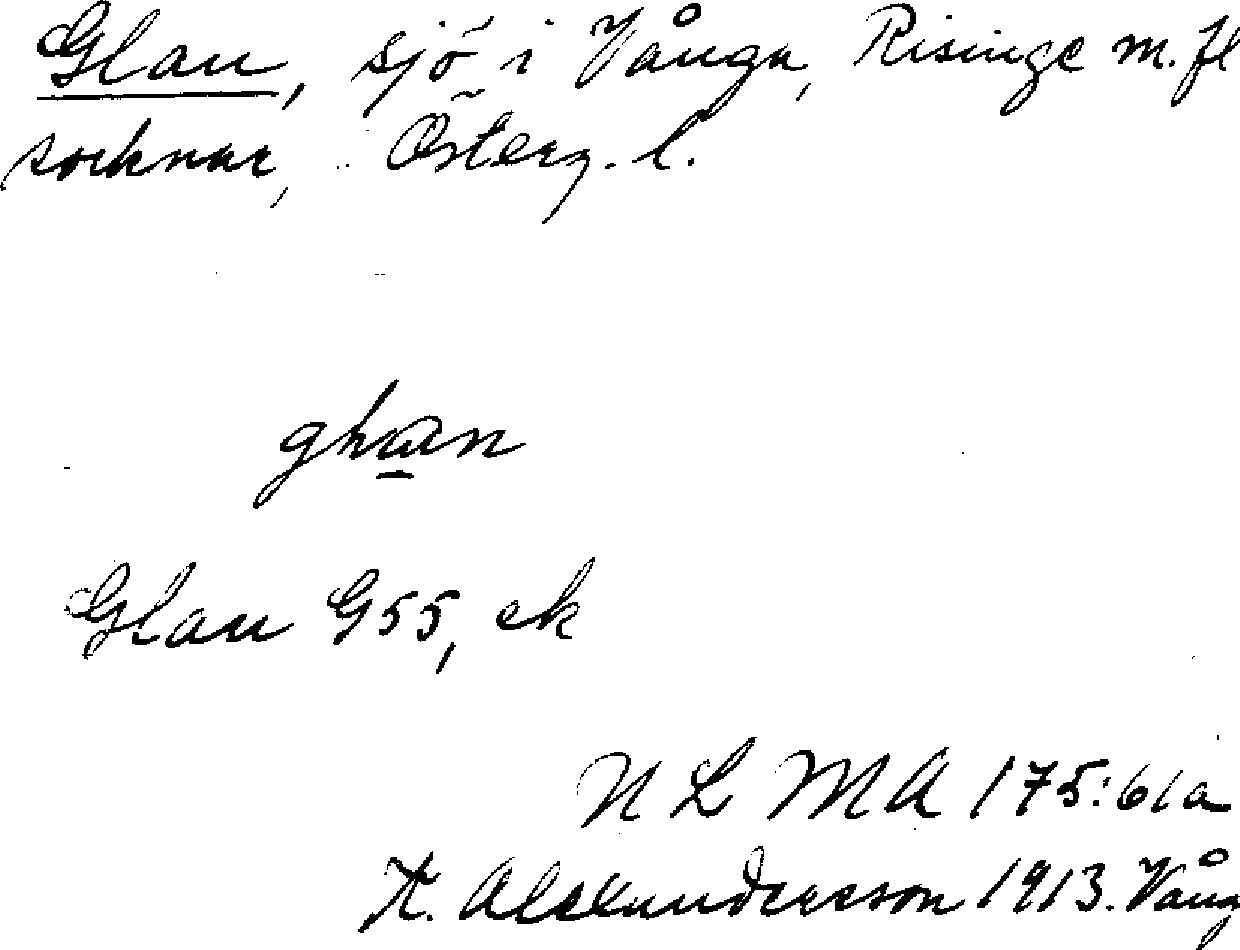 Glan, sjö i Vånga, Risinge m. fl
socknar, Österg. l.
Glan G55, ek
N L M A 175:61a
K. Alexandersson 1913. Vång